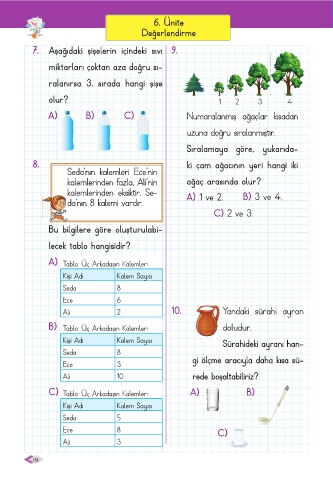 6. Ünite
Değerlendirme
7. Aşağıdaki şişelerin içindeki sıvı
miktarları çoktan aza doğru sı-
ralanırsa 3. sırada hangi şişe
olur?
A) B) C)
8.
Seda'nın kalemleri Ece'nin
kalemlerinden fazla, Ali'nin
kalemlerinden eksiktir. Se-
da'nın 8 kalemi vardır.
Bu bilgilere göre oluşturulabi-
lecek tablo hangisidir?
A) Tablo: Üç Arkadaşın Kalemleri
Kişi Adı Kalem Sayısı
Seda 8
Ece 6
Ali 2
B) Tablo: Üç Arkadaşın Kalemleri
Kişi Adı Kalem Sayısı
Seda 8
Ece 3
Ali 10
C) Tablo: Üç Arkadaşın Kalemleri
Kişi Adı Kalem Sayısı
Seda 5
Ece 8
Ali 3
9.
1 2 3 4
Numaralanmış ağaçlar kısadan
uzuna doğru sıralanmıştır.
Sıralamaya göre, yukarıda-
ki çam ağacının yeri hangi iki
ağaç arasında olur?
A) 1 ve 2. B) 3 ve 4.
C) 2 ve 3.
10. Yandaki sürahi ayran
doludur.
Sürahideki ayranı han-
gi ölçme aracıyla daha kısa sü-
rede boşaltabiliriz?
A) B)
C)